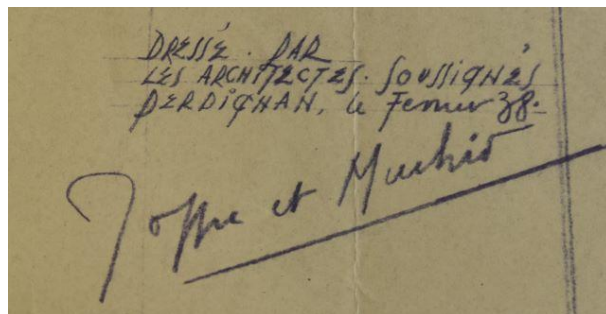 DRESSÉ. PAR
LES ARCHITECTES. SOUSSIGNÉS
PERPIGNAN, le Fevrier 38.
Joffre et Muchir